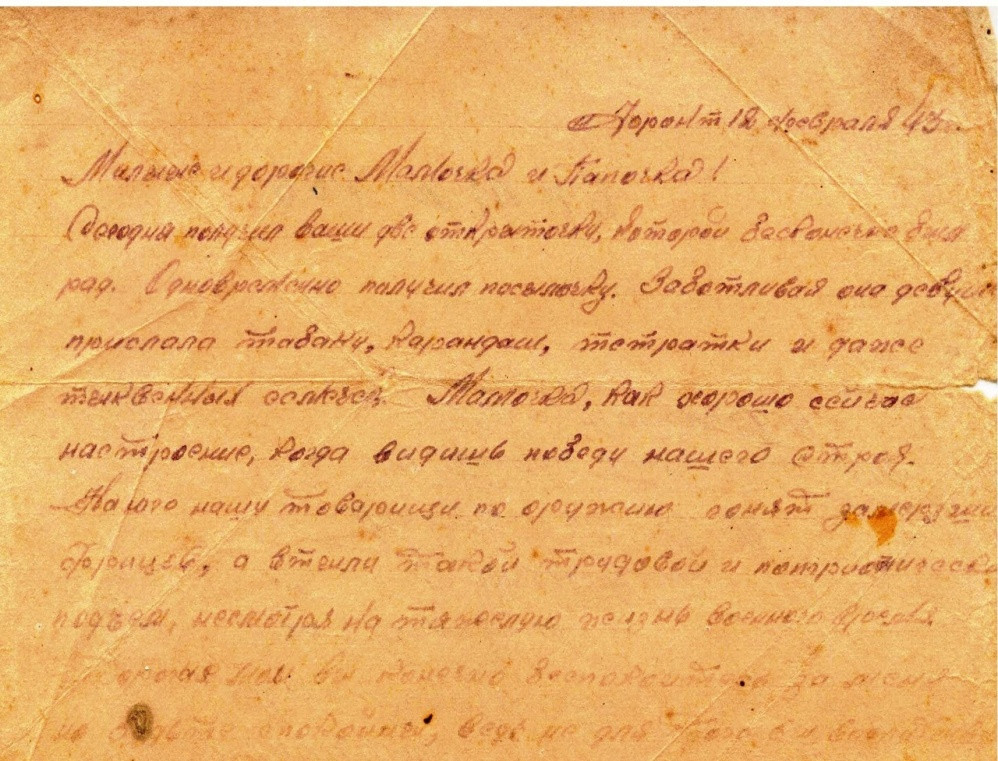 Фронт 12 февраля 43 г.
Милые и дорогие Мамочка и Папочка!
Сегодня получил ваши две открыточки, которой бесконечно был
рад. Одновременно получил посылочку. Заботливая она девуш
прислала табаку, карандаш, тетратки и даже
тыквенных семечек. Мамочка, как хорошо сейчас
настроение, когда видишь победу нашего строя.
На юге наши товарищи по оружию гонят замерзших
фрицев, а в тылу такой трудовой и патриотически
подъем, несмотря на тяжелую жизнь военного время
дорогая моя вы конечно беспокоитесь за меня
но будьте спокойны, ведь не для того вы